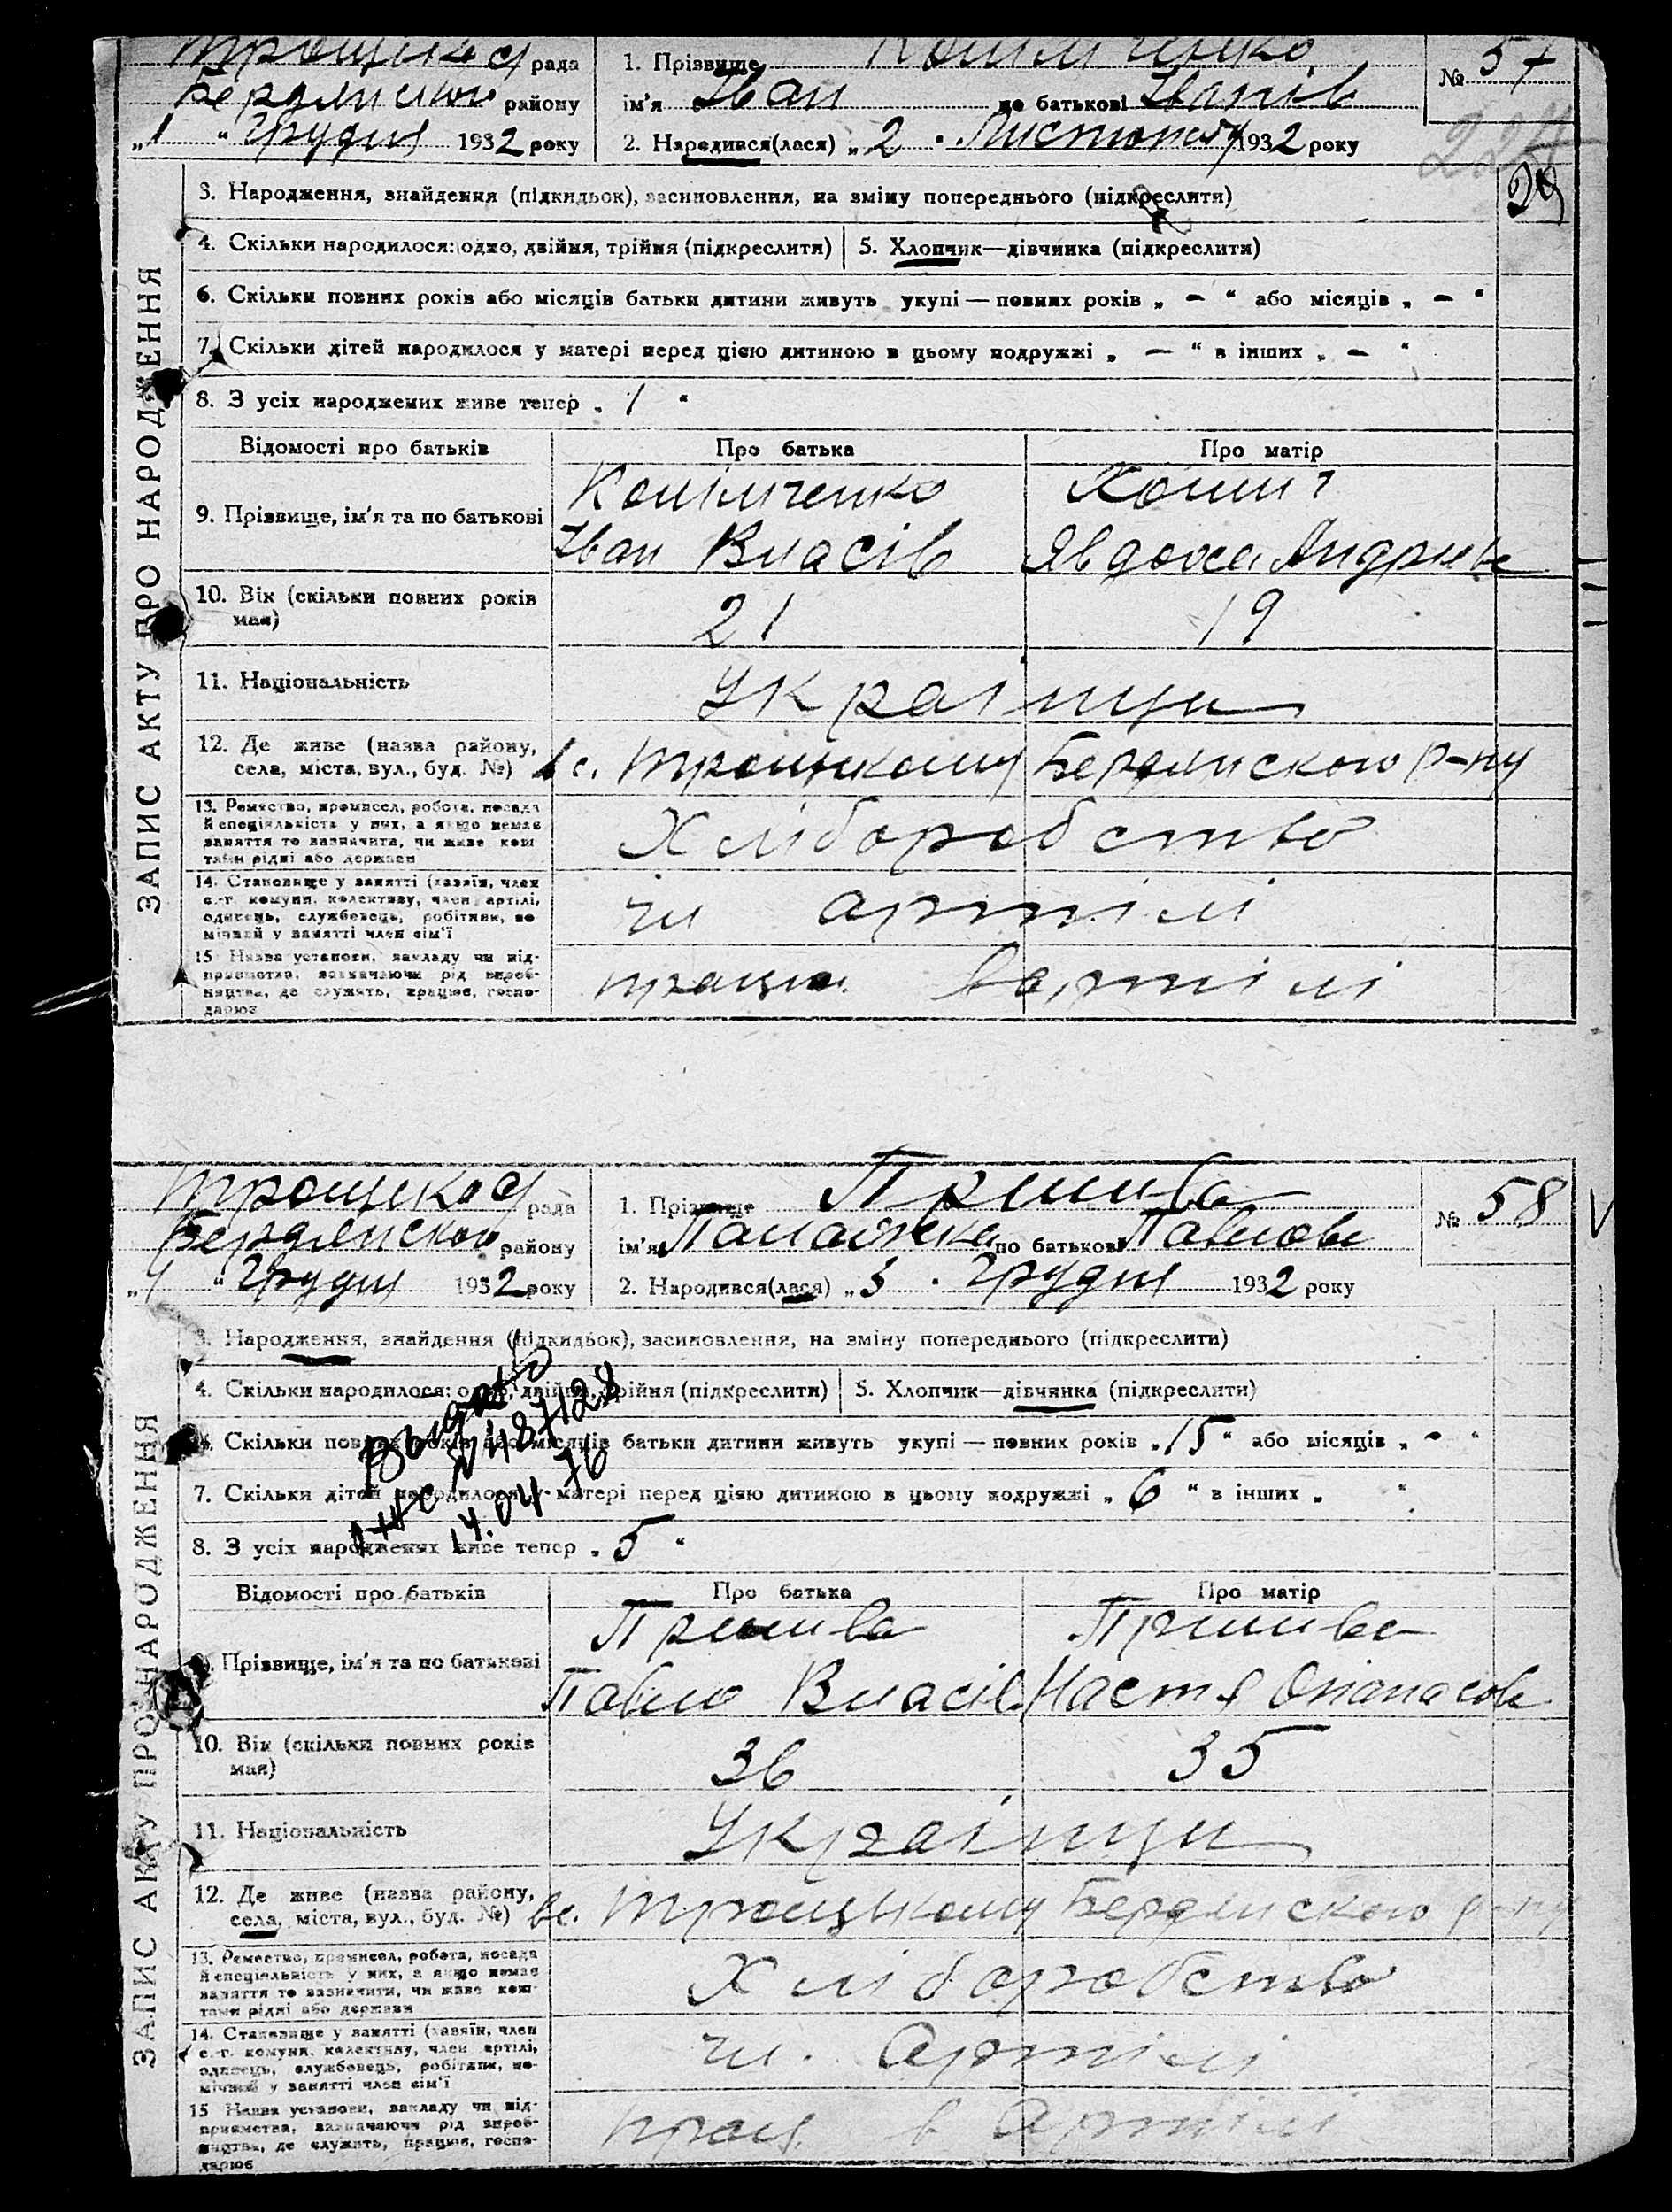 Троцька с/ рада
Бердянського району
„1“ Грудня 1932 року
1. Прізвище
ім'я Іван по батькові Іванів
2. Народився(лася) „2“ Листопаду 1932 року
№ 57
29
ЗАПИС АКТУ ПРО НАРОДЖЕННЯ
3. Народження, знайдення (підкидьок), засиновлення, на зміну попереднього (підкреслити)
4. Скільки народилося: одно, двійня, трійня (підкреслити)
5. Хлопчик—дівчинка (підкреслити)
6. Скільки повних років або місяців батьки дитини живуть укупі — повних років „ – “ або місяців „ – “
7. Скільки дітей народилося у матері перед цією дитиною в цьому подружжі „ – “ в інших „ – “
8. З усіх народжених живе тепер „ 1 “
Відомості про батьків
Про батька
Про матір
9. Прізвище, ім'я та по батькові
Іван Власів
Явдоха Андрієв
10. Вік (скільки повних років
має)
21
19
11. Національність
Українци
12. Де живе (назва району,
села, міста, вул., буд. №)
в с. Троцькому Бердянского р-ну
13. Ремество, промисел, робота, посада
й спеціяльність у них, а якщо немає
заняття то зазначити, чи живе кош
тами рідні або держави
Хліборобство
14. Становище у занятті (хазяїн, член
с.-г. комуни, колективу, член артілі,
одинець, службовець, робітник, по
мічний у занятті член сім'ї
чл артілі
15 Назва установи, закладу чи під-
приємства, зазначаючи рід вироб-
ництва, де служить, працює, госпо-
дарює
працю. в артілі
Троцька с/ рада
Бердянського району
„4“ Грудня 1932 року
1. Прізвище Примива
ім'я Палажка по батькові Павлове
2. Народився(лася) „3“ Грудня 1932 року
№ 58
ЗАПИС АКТУ ПРО НАРОДЖЕННЯ
3. Народження, знайдення (підкидьок), засиновлення, на зміну попереднього (підкреслити)
4. Скільки народилося: одно, двійня, трійня (підкреслити)
5. Хлопчик—дівчинка (підкреслити)
6. Скільки повних років або місяців батьки дитини живуть укупі — повних років „ 15 “ або місяців „ – “
7. Скільки дітей народилося у матері перед цією дитиною в цьому подружжі „ 6 “ в інших „ “
8. З усіх народжених живе тепер „ 5 “
14.04 76
Відомості про батьків
Про батька
Про матір
9. Прізвище, ім'я та по батькові
Примива
Примива
Павло Власів
Настя Опанасов
10. Вік (скільки повних років
має)
36
35
11. Національність
Українци
12. Де живе (назва району,
села, міста, вул., буд. №)
в с. Троцькому Бердянского р-ну
13. Ремество, промисел, робота, посада
й спеціяльність у них, а якщо немає
заняття то зазначити, чи живе кош-
тами рідні або держави
Хліборобство
14. Становище у занятті (хазяїн, член
с.-г. комуни, колективу, член артілі,
одинець, службовець, робітник, по-
мічний у занятті член сім'ї
чл. Артілі
15 Назва установи, закладу чи під-
приємства, зазначаючи рід вироб-
ництва, де служить, працює, госпо-
дарює
прац. в Артілі